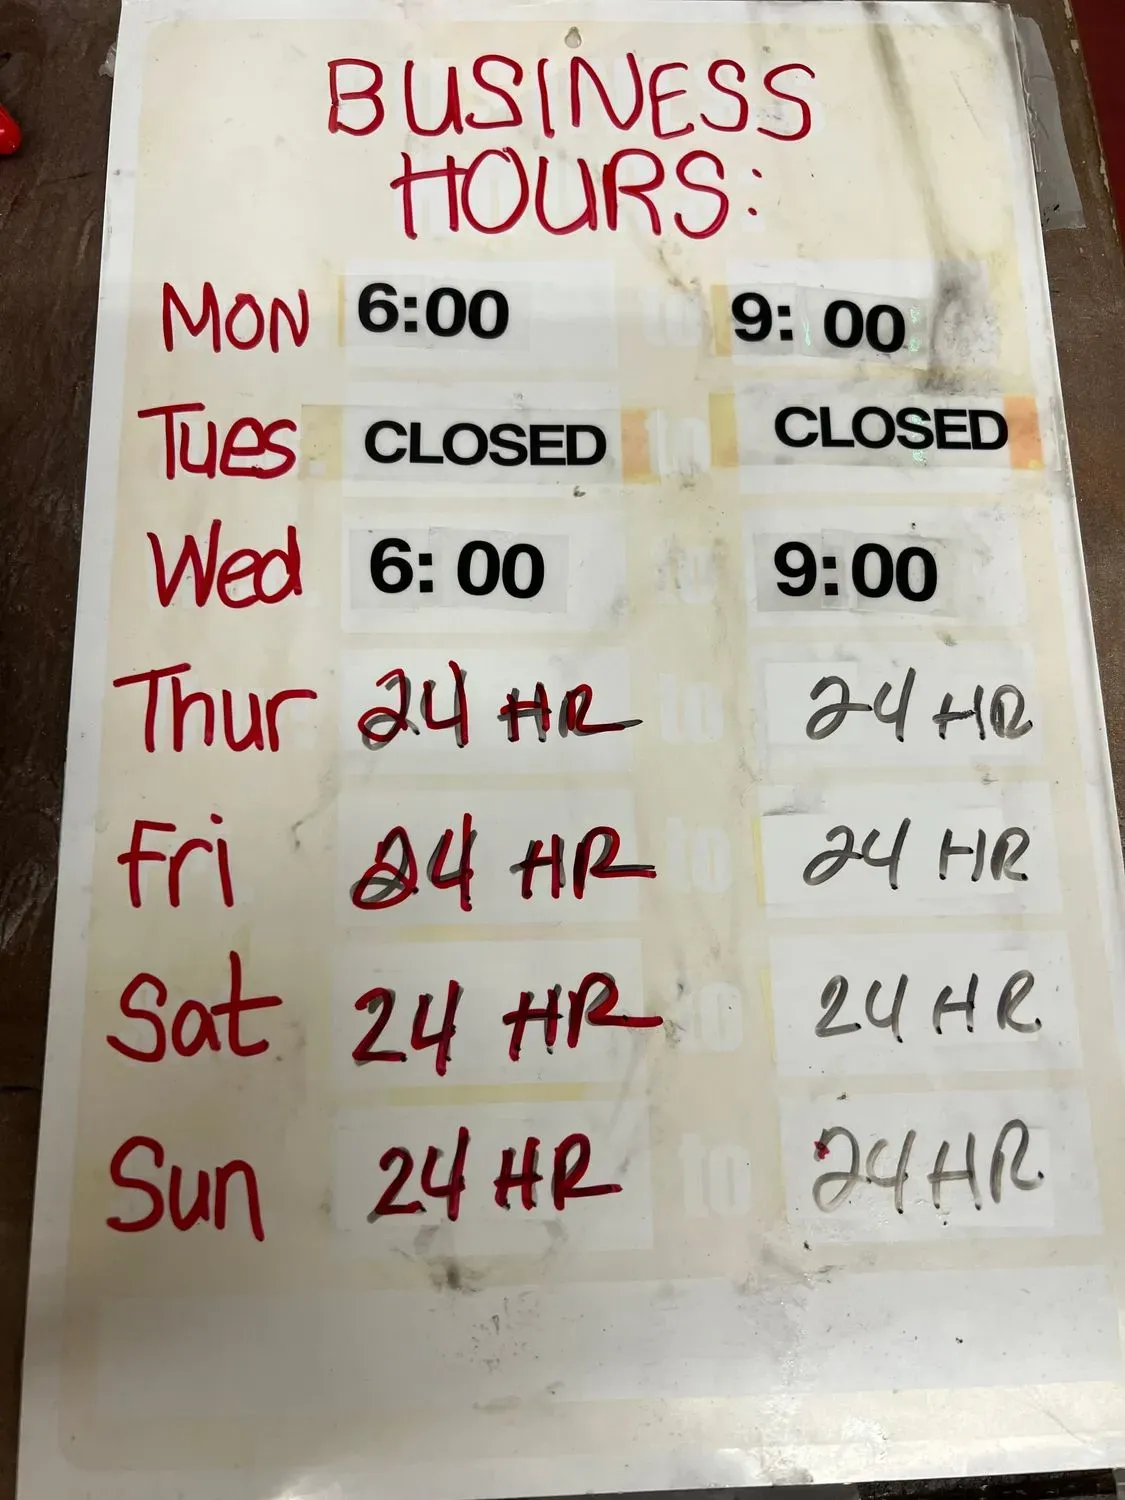 BUSINESS
HOURS:
MON 6:00 to 9:00
Tues CLOSED to CLOSED
Wed 6:00 to 9:00
Thur 24 HR to 24 HR
Fri 24 HR to 24 HR
Sat 24 HR to 24 HR
Sun 24 HR to 24 HR